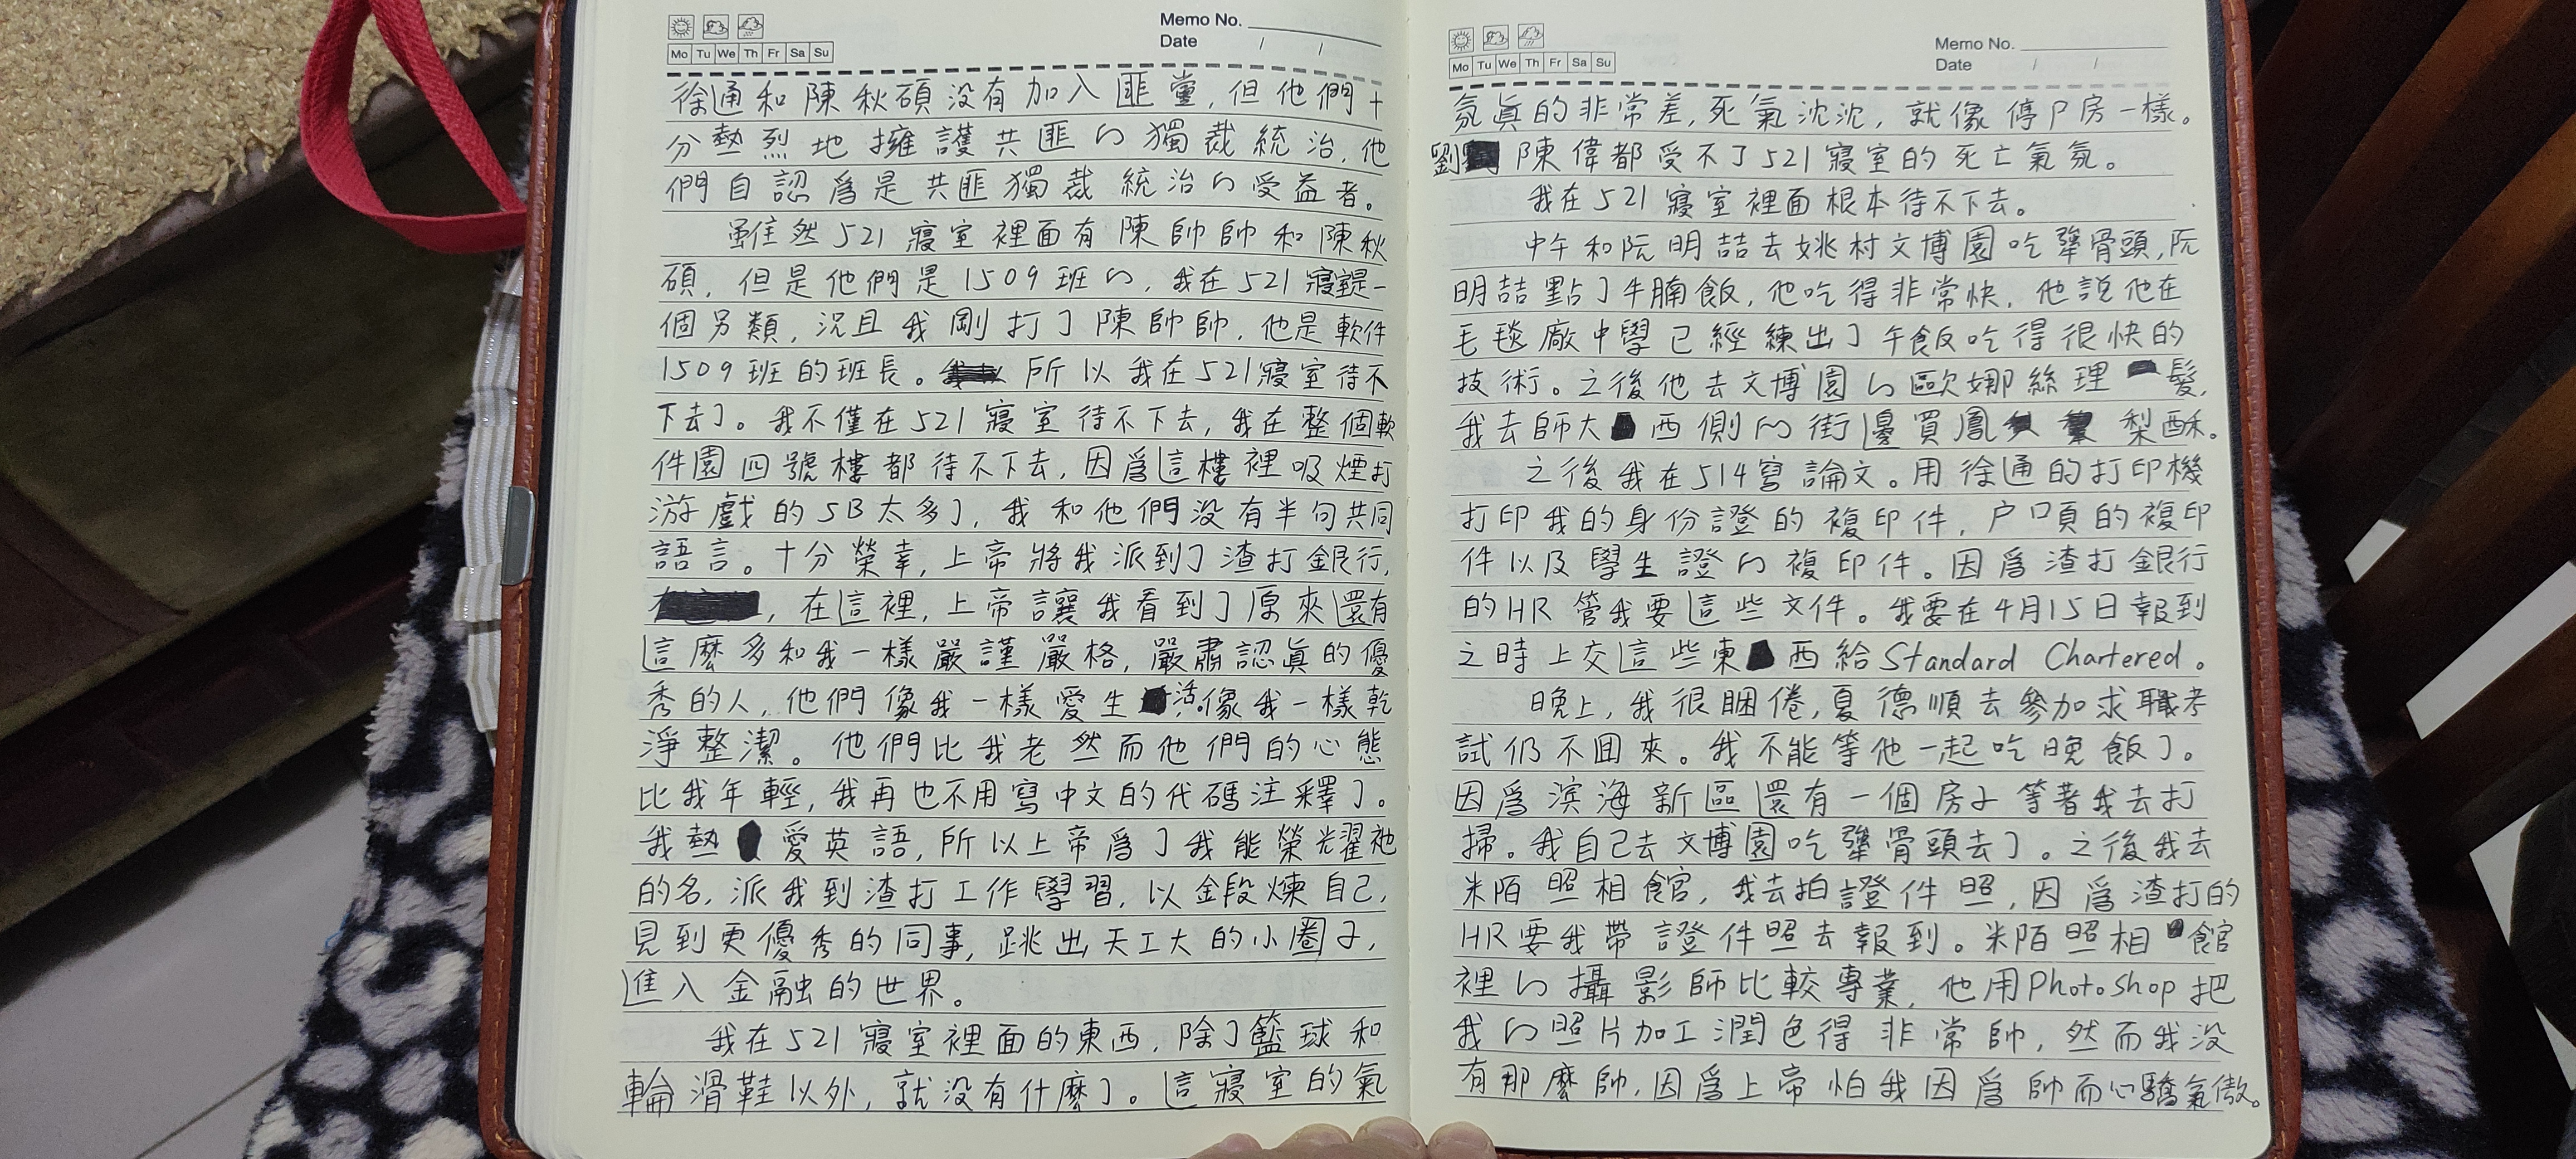 Mo Tu We Th Fr Sa Su
Memo No.
Date / /
徐通和陳秋碩没有加入匪黨,但他們十
分熱烈地擁護共匪的獨裁統治,他
們自認爲是共匪獨裁統治的受益者。
雖然521寢室裡面有陳帥帥和陳秋
碩,但是他們是1509班的,我在521寢室是一
個另類,況且我剛打了陳帥帥,他是軟件
1509班的班長。所以我在521寢室待不
下去了。我不僅在521寢室待不下去,我在整個軟
件園四號樓都待不下去,因爲這樓裡吸煙打
游戲的SB太多了,我和他們没有半句共同
語言。十分榮幸,上帝將我派到了渣打銀行,
,在這裡,上帝讓我看到了原來還有
這麼多和我一樣嚴謹嚴格,嚴肅認眞的優
秀的人,他們像我一樣愛生活,像我一樣乾
淨整潔。他們比我老然而他們的心態
比我年輕,我再也不用寫中文的代碼注釋了。
我熱愛英語,所以上帝爲了我能榮耀祂
的名,派我到渣打工作學習,以鍛煉自己,
見到更優秀的同事,跳出天工大的小圈子,
進入金融的世界。
我在521寢室裡面的東西,除了籃球和
輪滑鞋以外,就没有什麼了。這寢室的氣
Mo Tu We Th Fr Sa Su
Memo No.
Date / /
氛眞的非常差,死氣沈沈,就像停尸房一樣。
劉 陳偉都受不了521寢室的死亡氣氛。
我在521寢室裡面根本待不下去。
中午和阮明喆去姚村文博園吃犟骨頭,阮
明喆點了牛腩飯,他吃得非常快,他說他在
毛毯廠中學已經練出了午飯吃得很快的
技術。之後他去文博園的歐娜絲理髮,
我去師大西側的街邊買鳳梨酥。
之後我在514寫論文。用徐通的打印機
打印我的身份證的複印件,户口頁的複印
件以及學生證的複印件。因爲渣打銀行
的HR管我要這些文件。我要在4月15日報到
之時上交這些東西給Standard Chartered。
晚上,我很睏倦,夏德順去參加求職考
試仍不囬來。我不能等他一起吃晚飯了。
因爲滨海新區還有一個房子等著我去打
掃。我自己去文博園吃犟骨頭去了。之後我去
米陌照相館,我去拍證件照,因爲渣打的
HR要我帶證件照去報到。米陌照相館
裡的攝影師比較專業,他用Photoshop把
我的照片加工潤色得非常帥,然而我没
有那麼帥,因爲上帝怕我因爲帥而心驕氣傲。